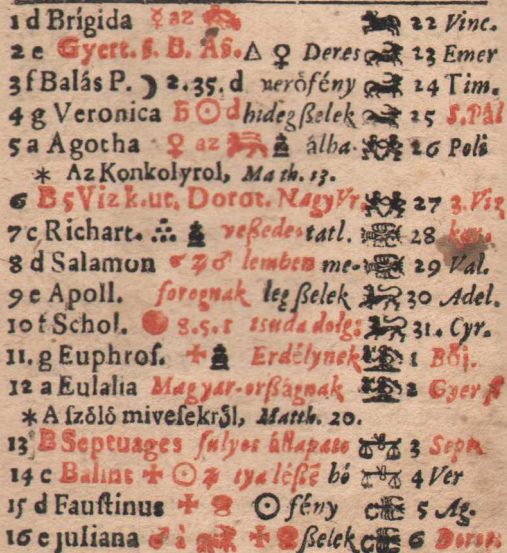 1 d Brígida ☿ az 22 Vinc.
2 e Gyert. ß. B. Aß. △ ♀ Deres 23 Emer
3 f Balás P. ☽ 2.35. d verőfény 24 Tim.
4 g Veronica ☉ d hideg ßelek 25 S. Pál
5 a Agotha ♀ az álba- 26 Poli
* Az Konkolyrol, Math. 13.
6 B 5 Viz k. ut. Dorot. Nagy Vr. 27 3. Viz
7 c Richart. veßede- tatl. 28
8 d Salamon lemben me- 29 Val.
9 e Apoll. forognak leg ßelek 30 Adel.
10 f Schol. 8.5.1 tsuda dolg: 31. Cyr.
11. g Euphros. Erdélynek 1 Böj.
12 a Eulalia Magyar-orßágnak 2 Gyer
* A ſzőlő miveſekről, Matth. 20.
13 B Septuages ſulyos állapato 3 Sept
14 c Bálint ☉ bó 4 Ver
15 d Fauſtinus ☉ fény 5 Ag.
16 e Juliana ♂ à ßelek 6 Dorot